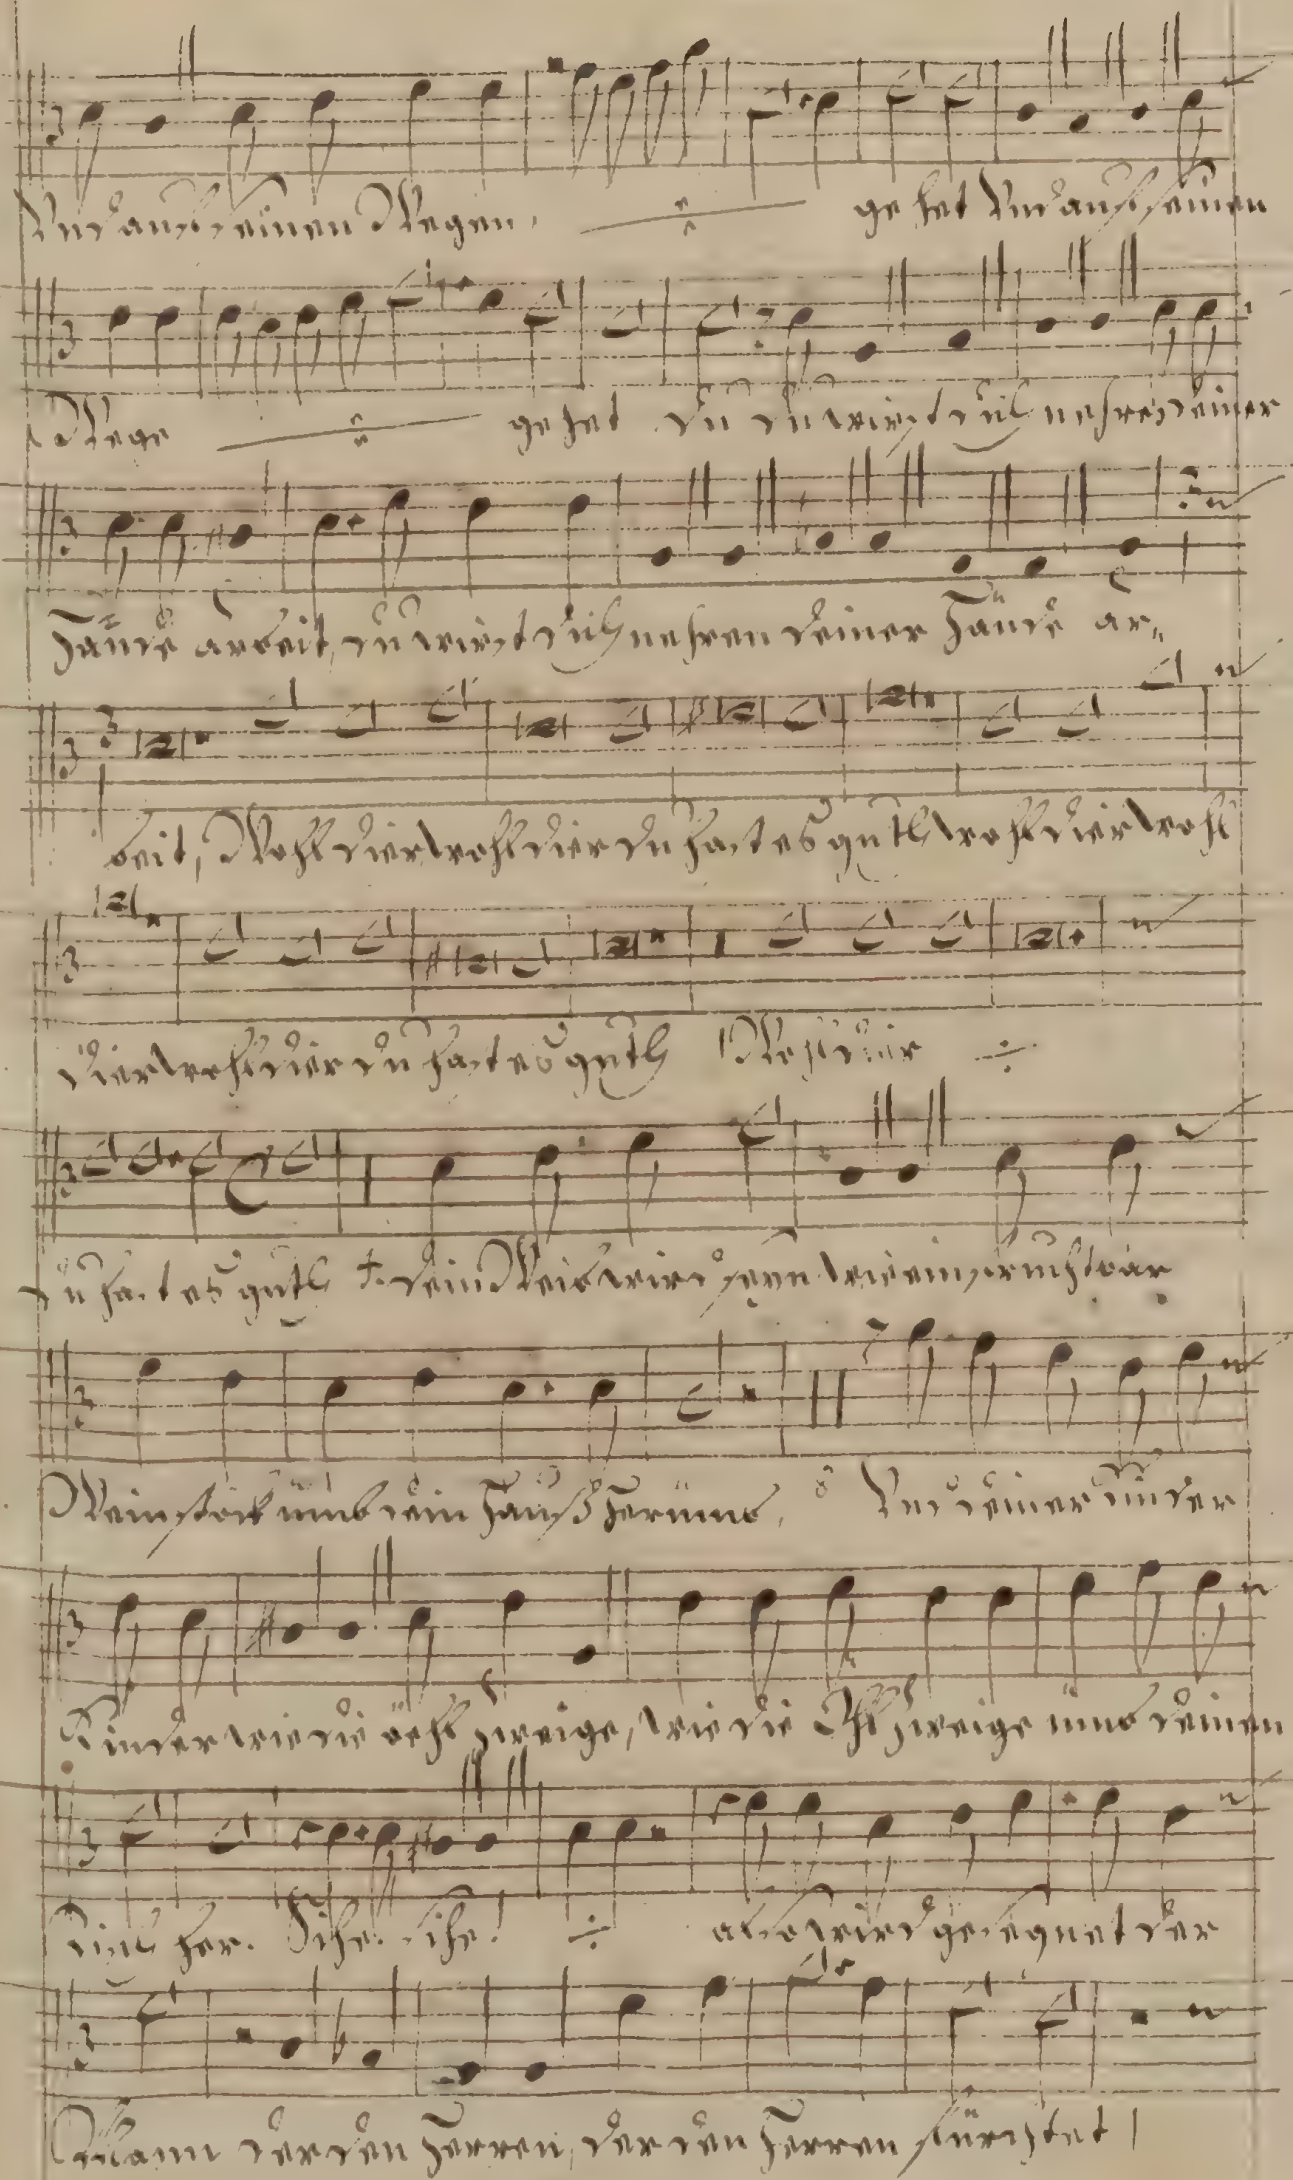 Und auf seinen Wegen, gehet Und auf seinen
Wege gehet du du wirst dich nehren deiner
Hände arbeit, du wirst dich nehren deiner Hände ar-
beit, Wohl dier wohl dier du hast es guth wohl dier wohl
dier wohl dier du hast es guth Wohl dier
du hast es guth dein Weib wird seyn wie ein fruchtbar
Weinstock umb dein Hauß herumb, Und deiner
Kinder wie die öehl zweige, wie die Öhl zweige umb deinen
Tisch her. Sihe. sihe! also wird gesegnet der
Mann der den Herren, der den Herren fürchtet